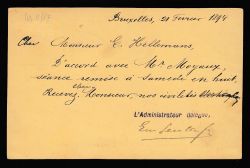 Bruxelles, 21 Février 1894
Cher Monsieur E. Hellemans,
D'accord avec Mr. Moyaux,
séance remise à Samedi en huit.
Recevez, cher Monsieur, nos civilités
L'Administrateur délégué,